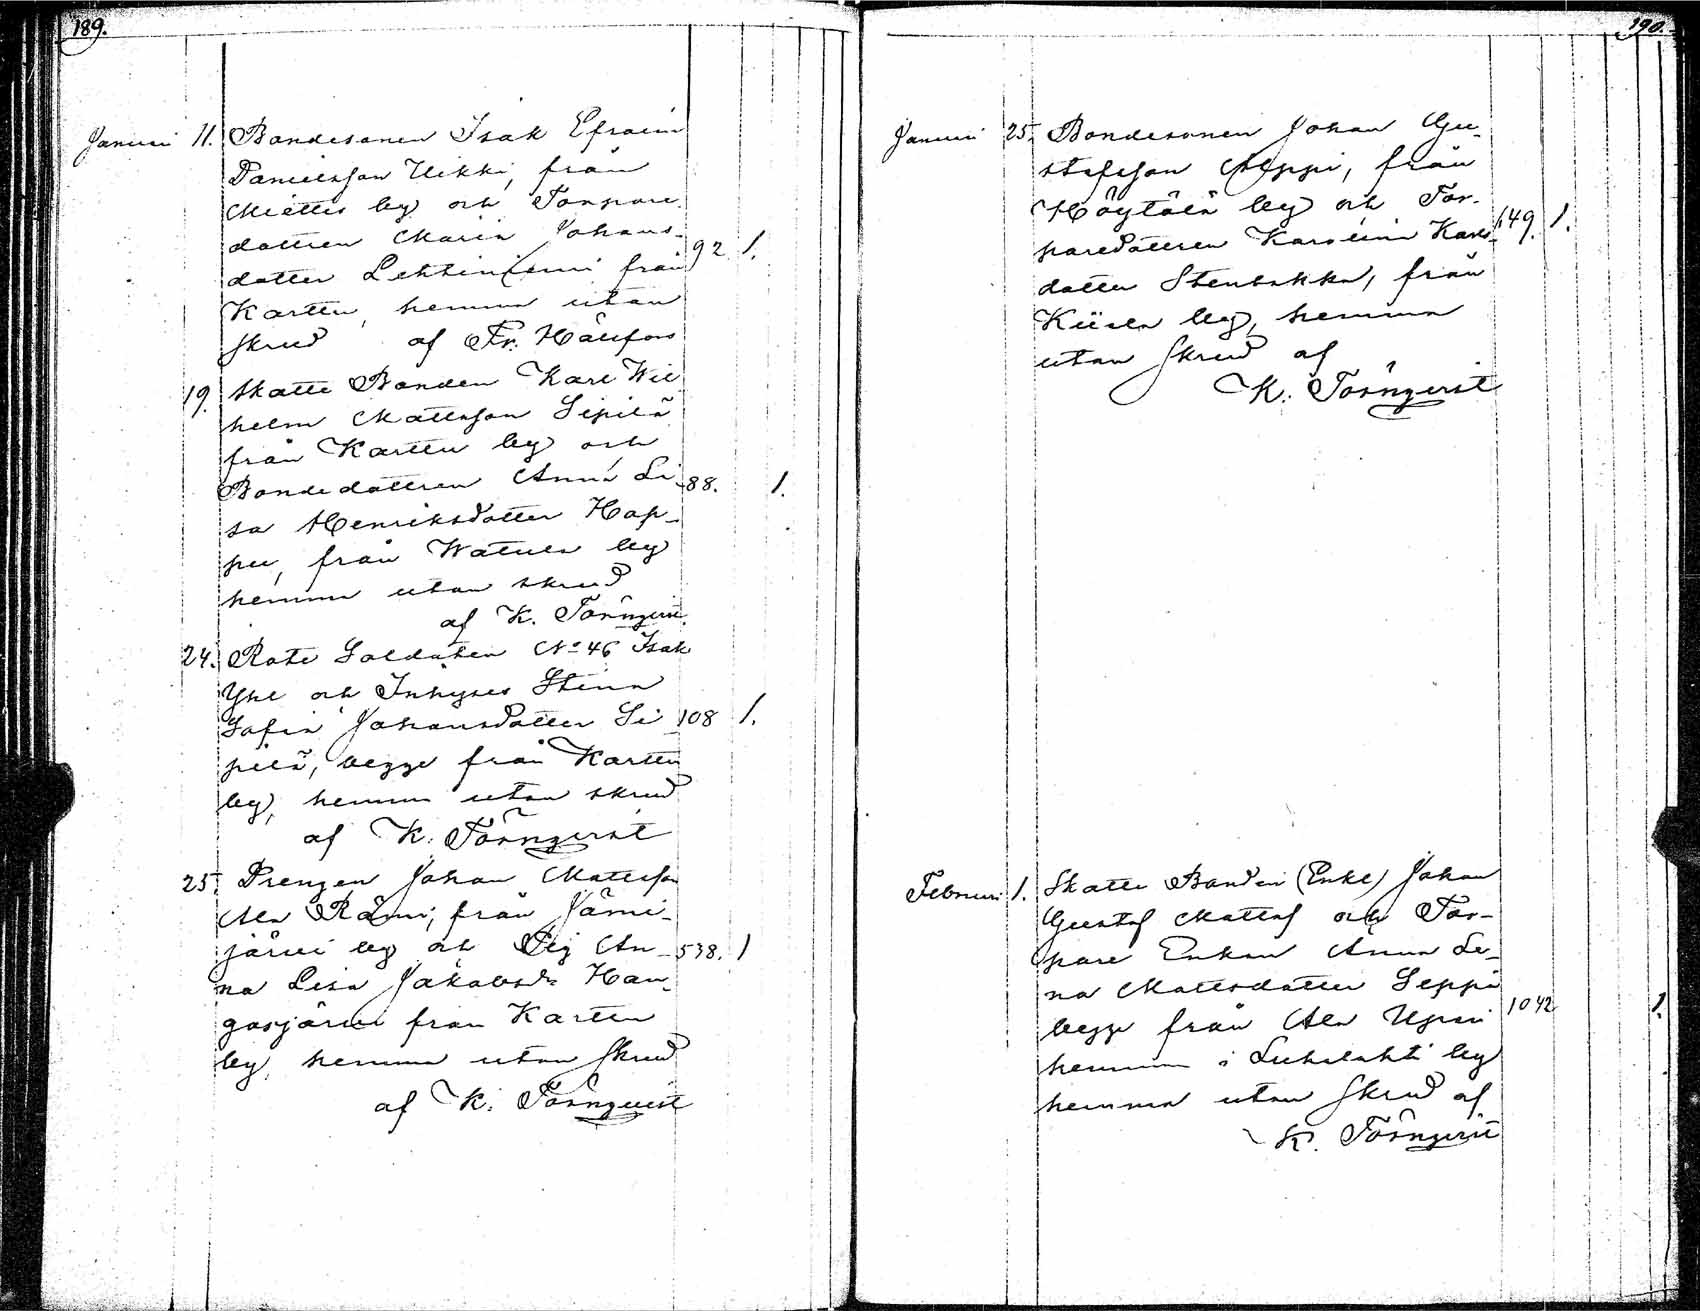 189.
Januari 11. Bondesonen Isak Efraim
Danielsson Uikki, från
Miettis by och Torpare
dottren Maria Johans-
dotter Lehtiniemi från 92. 1.
Karttu, hemma utan
skrud af Fr. Hällfors
19. Skatte Bonden Karl Wil
helm Mattsson Sipilä
från Karttu by och
Bondedottren Anna Li- 88. 1.
sa Henriksdotter Hop-
pu, från Watula by
hemma utan skrud
af K. Törnqvist.
24. Rote Soldaten No 46 Isak
Yhl och Inhyses Stina
Sofia Johansdotter Si 108 1.
pilä, begge från Karttu
by, hemma utan skrud
af K. Törnqvist
25. Drengen Johan Mattsson
Ala Rämi, från Jämi-
järvi by och Pig An- 538. 1
na Lisa Jakobsdr Han-
gasjärvi från Karttu
by, hemma utan skrud
af K. Törnqvist
190.
Januari 25. Bondesonen Johan Gu-
stafsson Seppi, från
Höytölä by och Tor-
paredottren Karolina Karls- 649. 1.
dotter Stenbakka, från
Kiisla by, hemma
utan skrud af
K. Törnqvist
Februari 1. Skatte Bonden (Enkl) Johan
Gustaf Mattsson och Tor-
pare Enkan Anna Le-
na Mattsdotter Seppi
begge från Ala 1042 1.
hemman i Luhalahti by
hemma utan skrud af
K. Törnqvist